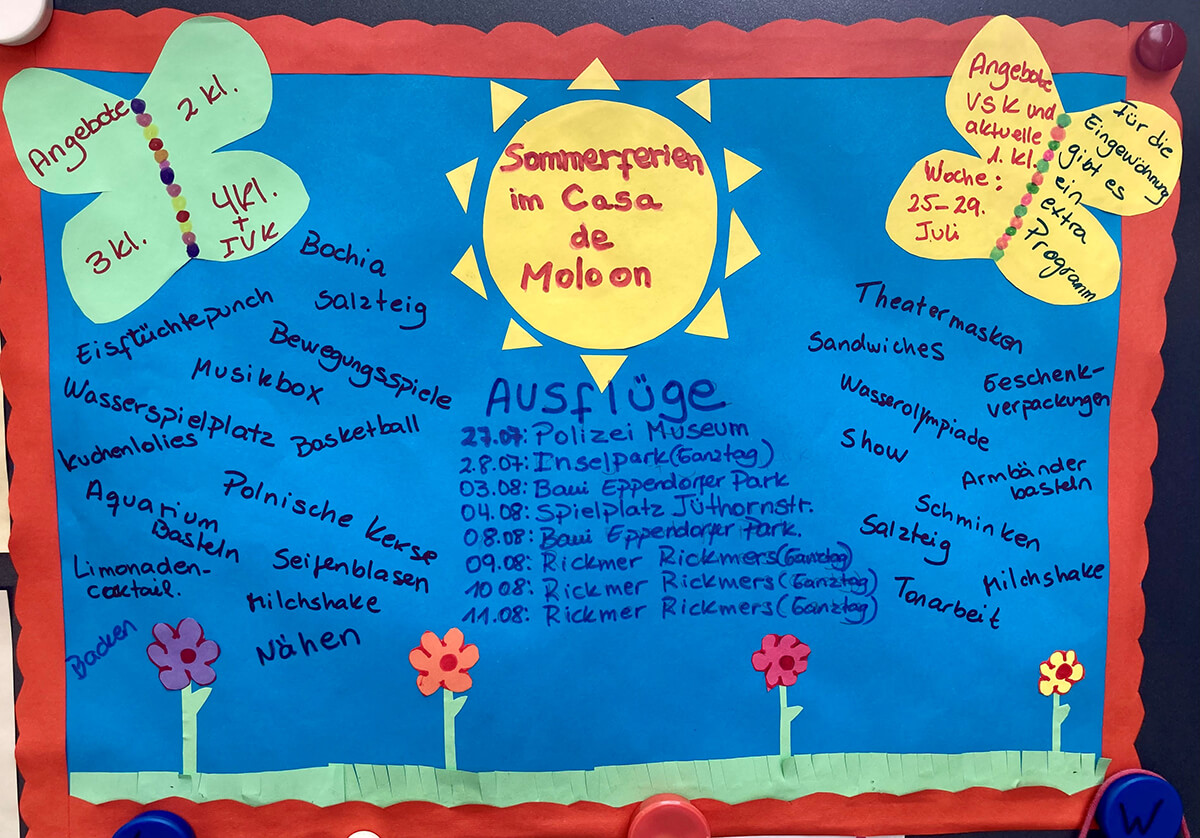 Angebote
2 Kl.
3 Kl.
4 Kl.
+
IVK
Sommerferien
im Casa
de
Moloon
Angebote
VSK und
aktuelle
1. Kl.
Woche:
25-29.
Juli
Für die
Eingewöhnung
gibt es
ein
extra
Programm
Bochia
Salzteig
Eisflüchtepunch
Bewegungsspiele
Musikbox
Wasserspielplatz
Basketball
Kuchenlolies
Polnische Kerse
Aquarium
Basteln
Seifenblasen
Limonaden-
coktail.
Milchshake
Backen
Nähen
Ausflüge
27.07: Polizei Museum
28.07: Inselpark (Ganztag)
03.08: Baui Eppendorfer Park
04.08: Spielplatz Jüthornstr.
08.08: Baui Eppendorfer Park.
09.08: Rickmer Rickmers (Ganztag)
10.08: Rickmer Rickmers (Ganztag)
11.08: Rickmer Rickmers (Ganztag)
Theatermasken
Sandwiches
Geschenk-
verpackungen
Wasserolympiade
Show
Armbänder
basteln
Schminken
Salzteig
Milchshake
Tonarbeit
W